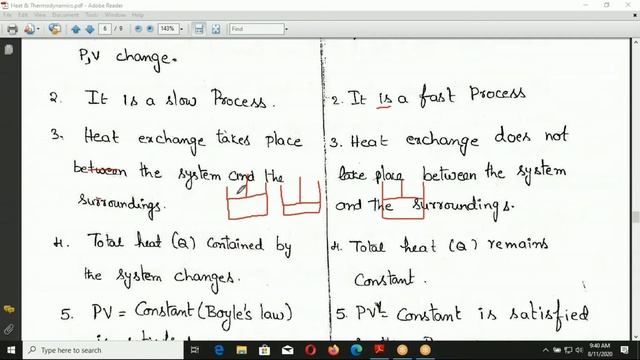 Heat & Thermodynamics.pdf - Adobe Reader
File Edit View Document Tools Window Help
6 / 9 143% Find
P,V change.
2. It is a slow Process.
3. Heat exchange takes place
between the system and the
surroundings.
4. Total heat (Q) contained by
the system changes.
5. PV = Constant (Boyle's law)
2. It is a fast Process
3. Heat exchange does not
take place between the system
and the surroundings.
4. Total heat (Q) remains
Constant.
5. PVᵞ = Constant is satisfied
Type here to search
9:40 AM
8/11/2020